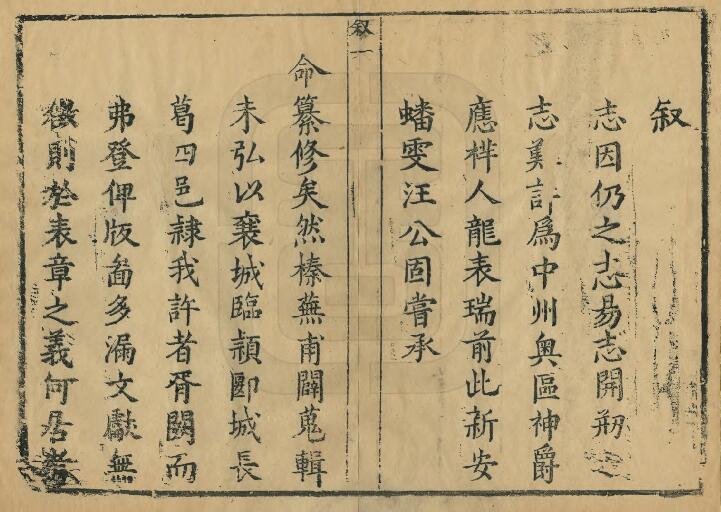 叙
志因仍之志易志開刱之
志難許為中州奧區神爵
應样人龍表瑞前此新安
蟠雯汪公固嘗承
叙一
命纂修矣然榛蕪甫闢蒐輯
未弘以襄城臨潁郾城長
葛四邑隸我許者胥闕而
弗登俾版啚多漏文獻無
徵則於表章之義何居考